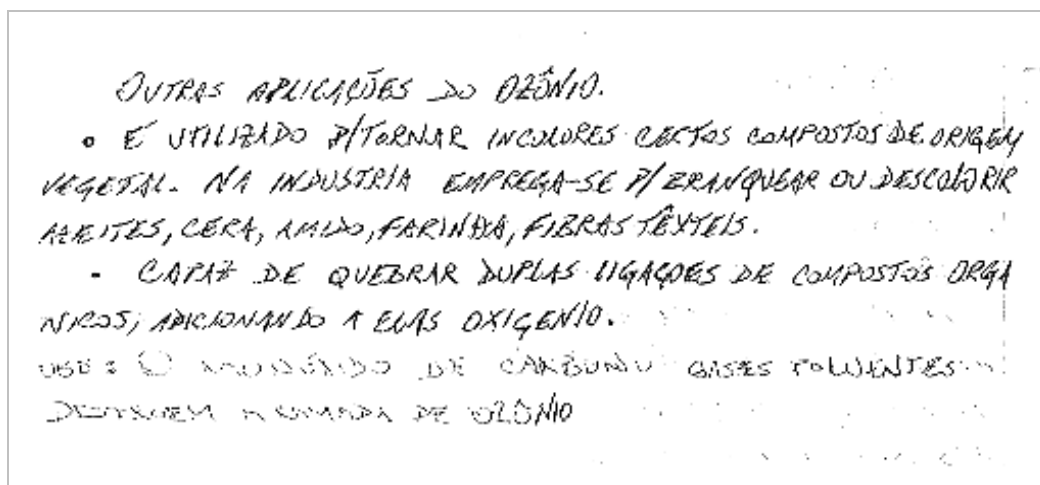 OUTRAS APLICAÇÕES DO OZÔNIO.
• E UTILIZADO P/TORNAR INCOLORES CERTOS COMPOSTOS DE ORIGEM
VEGETAL. NA INDUSTRIA EMPREGA-SE P/ BRANQUEAR OU DESCOLORIR
AZEITES, CERA, AMIDO, FARINHA, FIBRAS TÊXTEIS.
- CAPAZ DE QUEBRAR DUPLAS LIGAÇOES DE COMPOSTOS ORGA
NICOS, ADICIONANDO A ELAS OXIGENIO.
OBS: O DE CARBONO GASES POLUENTES
DESTROEM A CAMADA DE OZÔNIO